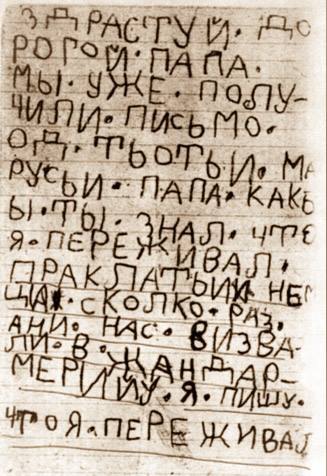 ЗДРАСТУЙ. ДО
РОГОЙ. ПАПА.
МЫ. УЖЕ. ПОЛУ-
ЧИЛИ. ПИСЬМО.
ОД. ТЬОТЬИ. МА
РУСЬИ. ПАПА. КАКЬ
Ы. ТЫ. ЗНАЛ. ЧТО
Я. ПЕРЕЖИВАЛ.
ПРАКЛАТЫИ НЕМ
ЦА. СКОЛКО. РАЗ.
АНИ. НАС. ВИЗВА-
ЛИ. В. ЖАНДАР-
МЕРИЙУ. Я. ПИШУ.
ЧТО Я. ПЕРЕЖИВАЛ